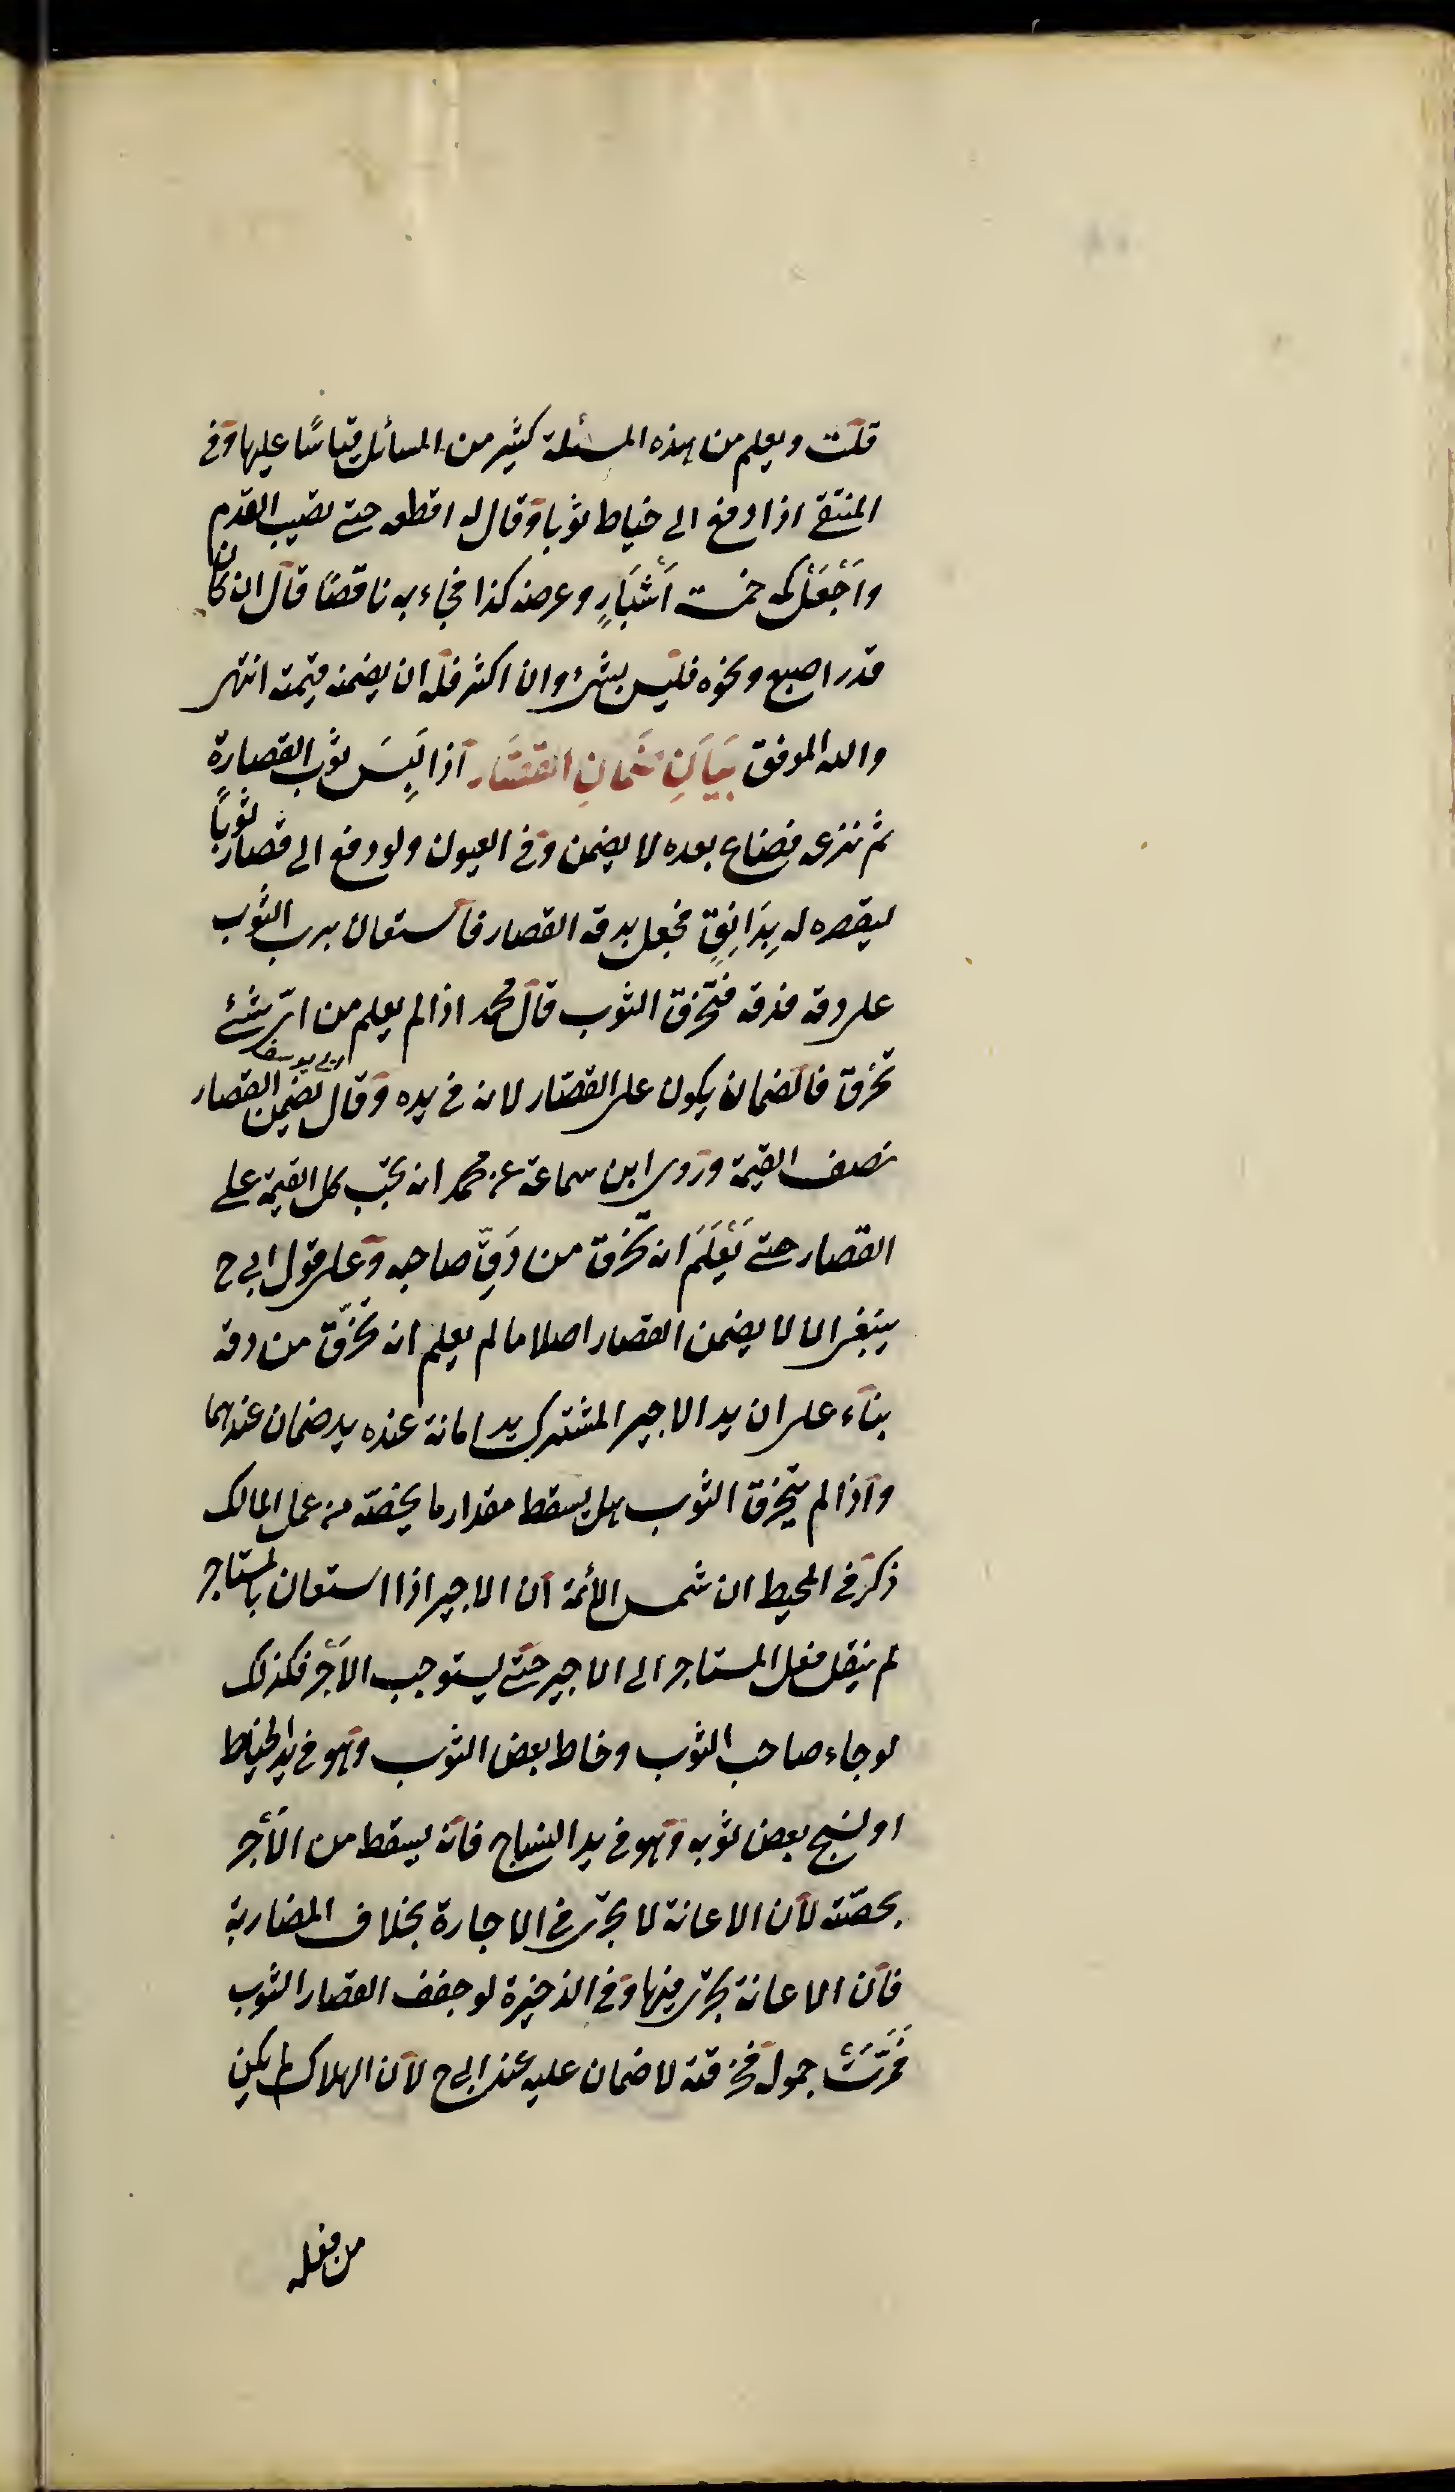 قلت ويعلم من هذه المسئلة كثير من المسائل قياسًا عليها وفى
المنتقى اذا دفع الى خياط ثوبا وقال له اقطعه حتى يصيب القدم
واَجْعَلْ كمه خمسة اَشْبَارٍ وعرضه كذا فجاء به ناقصًا قال ان كان
قدر اصبع ونحوه فليس بشئ وان اكثر فله ان يضمنه قيمته انتهى
والله الموفق بَيَانِ ضَمانِ القَصَّار اذا لَبِسَ ثوب القصارة
ثم نزعه فضاع بعده لا يضمن وفى العيون ولو دفع الى قصار ثوبًا
ليقصره له بِدَانِقٍ فجعل يدقه القصار فاستعان برب الثوب
على دقه فدقه فتخرق الثوب قال محمد اذا لم يعلم من اىّ شئ
تخرق فالضمان يكون على القصّار لانه فى يده وقال ابو يوسف يضمن القصار
نصف القيمة وروى ابن سماعة عن محمد انه يجب كل القيمة على
القصار حتى يَعْلَمَ انه تخرّق من دَقِّ صاحبه وعلى قول ابى ح
ينبغى ان لا يضمن القصار اصلا ما لم يعلم انه تخرّق من دقه
بناء على ان يد الاجير المشترك يد امانة عنده يد ضمان عندهما
واذا لم يتخرق الثوب هل يسقط مقدار ما يخصّه من عمل المالك
ذكر فى المحيط ان شمس الأئمة ان الاجير اذا استعان بالمستاجر
لم ينقل فعل المستاجر الى الاجير حتى يستوجب الاَجْر فكذلك
لو جاء صاحب الثوب وخاط بعض الثوب وهو فى يد الخياط
او نسج بعض ثوبه وهو فى يد النساج فانه يسقط من الاَجْر
بحصّته لان الاعانة لا تجرى فى الاجارة بخلاف المضاربة
فان الاعانة تجرى فيها وفى الذخيرة لو جفف القصار الثوب
فَمَرَّتْ حمولة فخرقته لا ضمان عليه عند ابى ح لان الهلاك لم يكن
من فعله